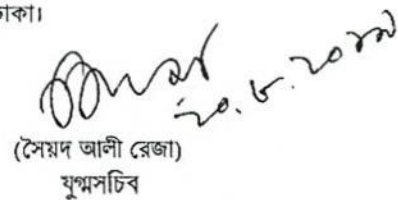 ঢাকা।
২০.৮.২০১৭
(সৈয়দ আলী রেজা)
যুগ্মসচিব